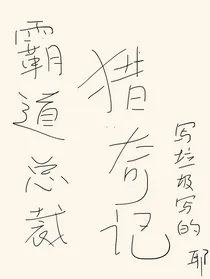 霸道总裁
猎奇记
写垃圾写的
耶